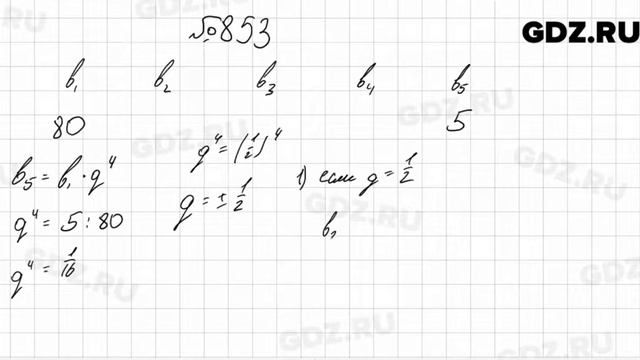 №853
GDZ.RU
b₁ b₂ b₃ b₄ b₅
80 5
b₅ = b₁ · q⁴
q⁴ = 5 : 80
q⁴ = 1/16
q⁴ = (1/2)⁴
q = ± 1/2
1) если q = 1/2
b₂
GDZ.RU
GDZ.RU
GDZ.RU
GDZ.RU
GDZ.RU
GDZ.RU
GDZ.RU